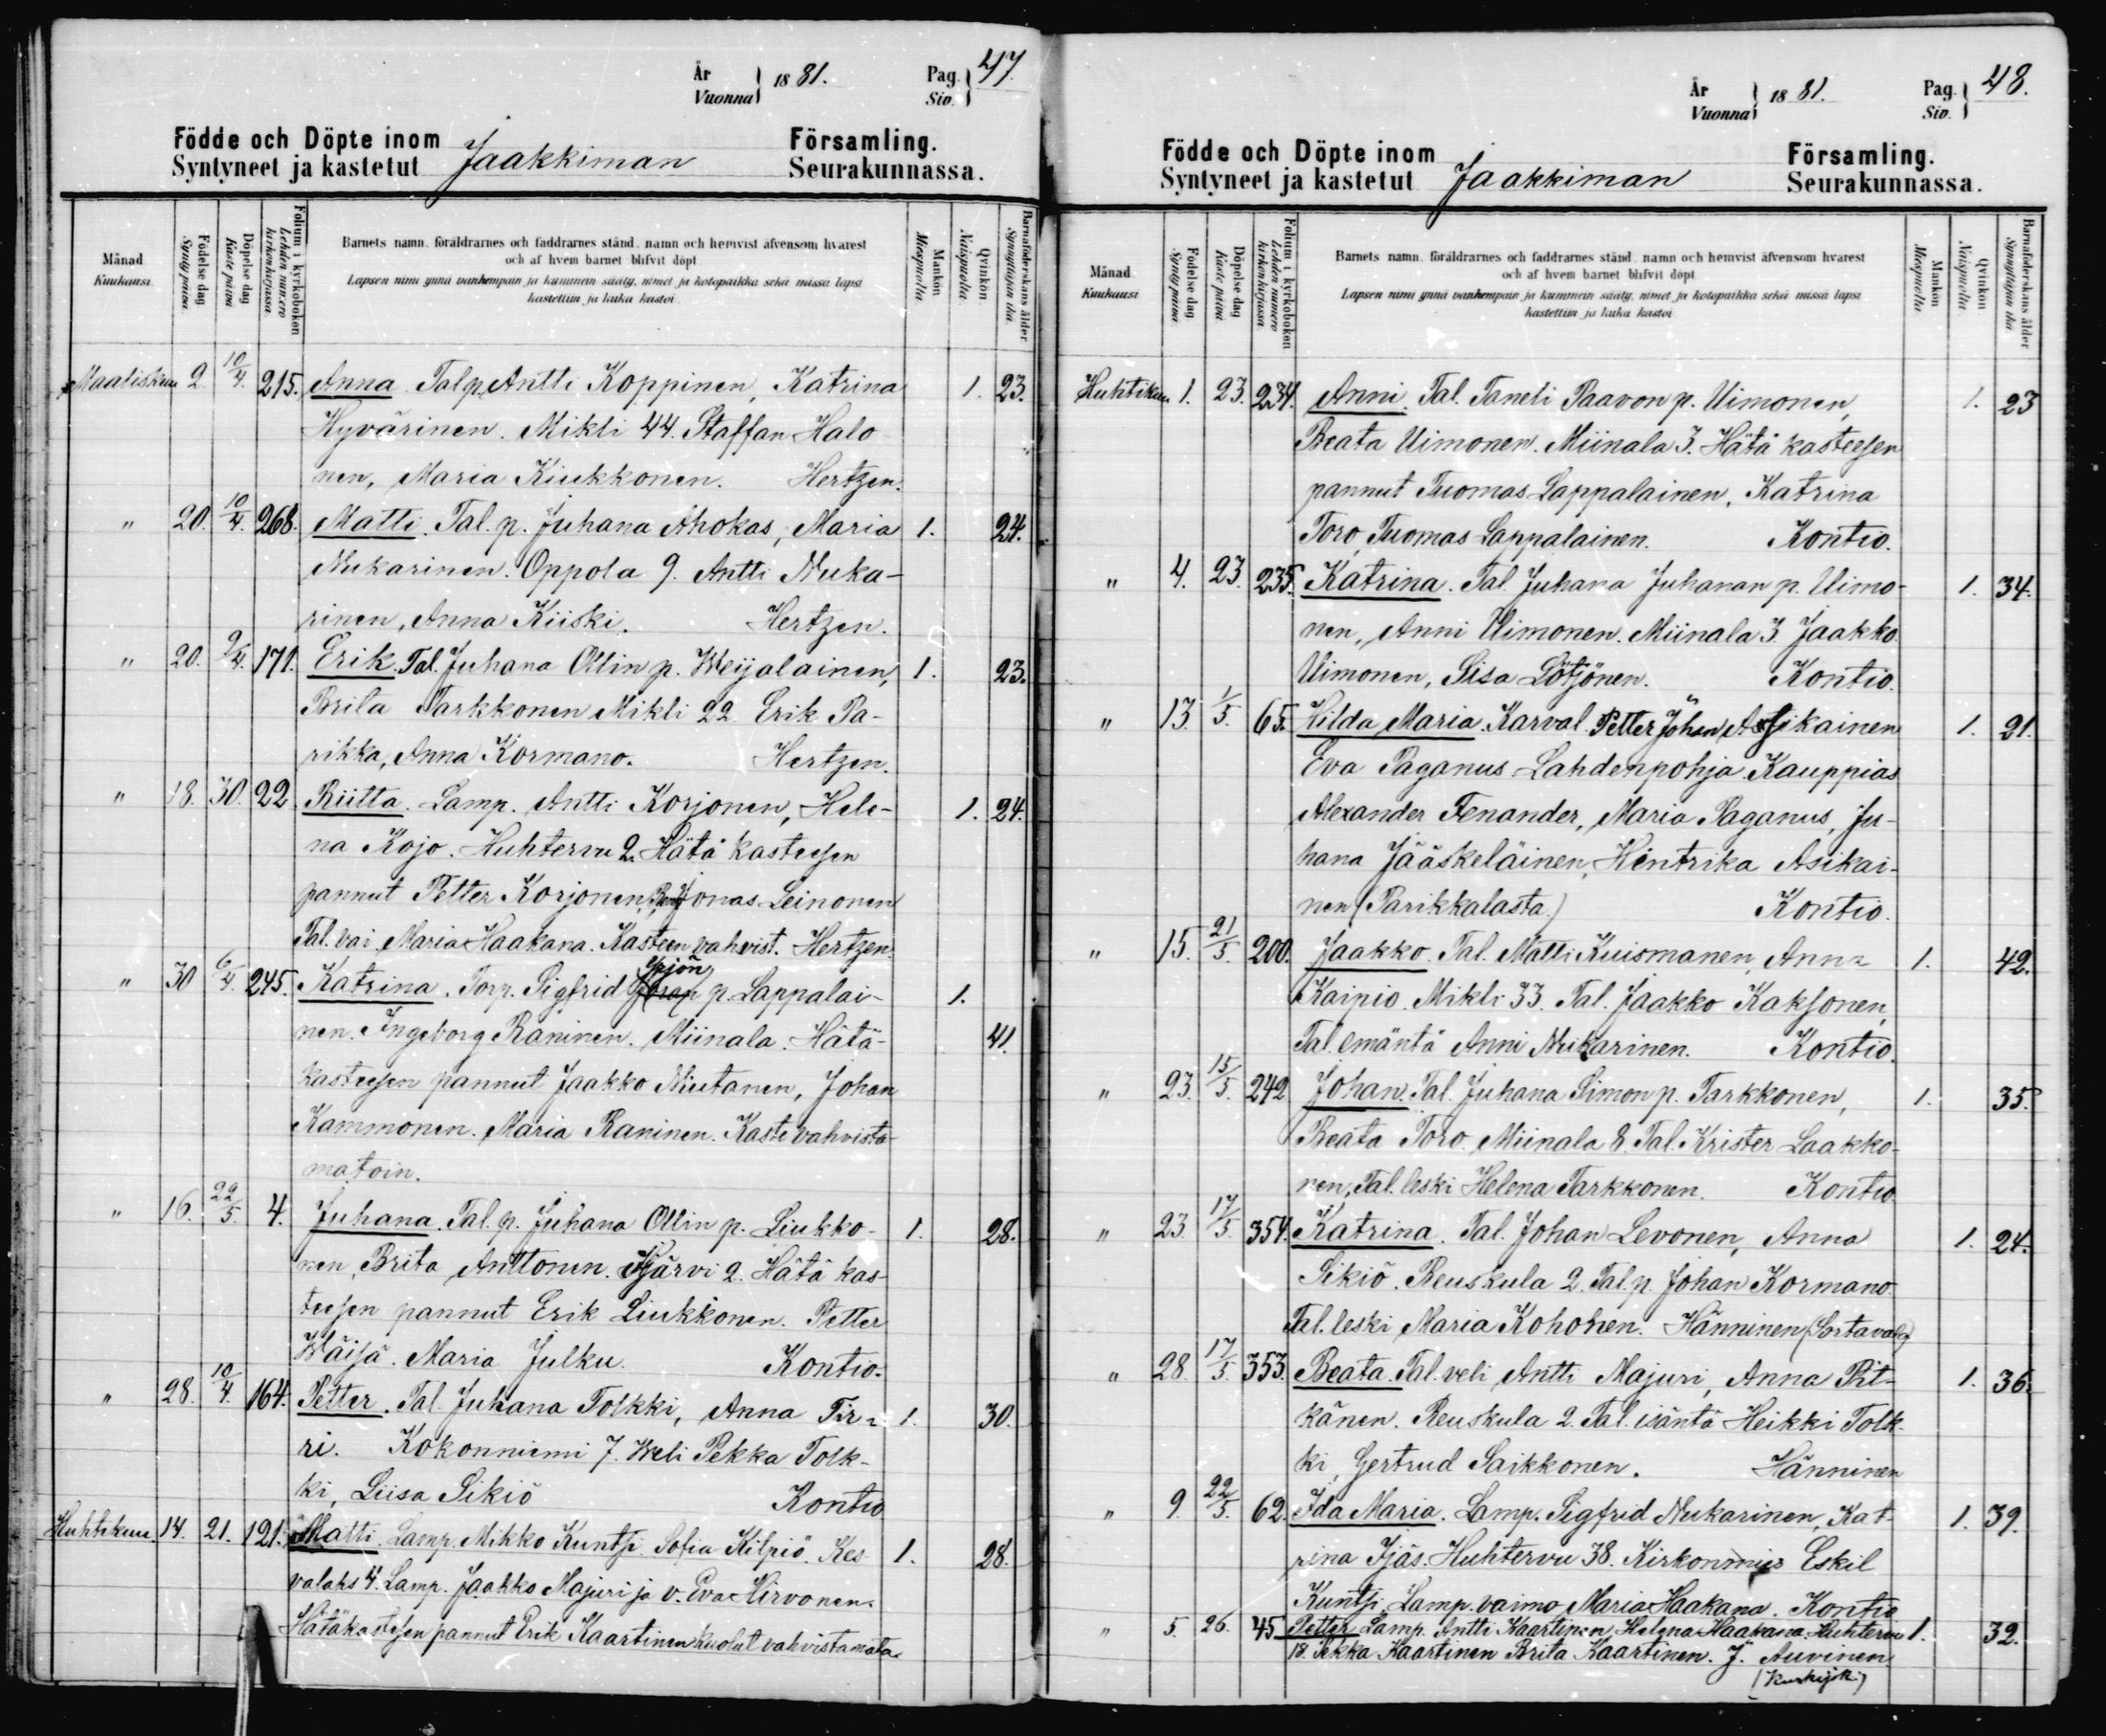 År Vuonna 1881. Pag. Siv. 47.
Födde och Döpte inom Församling.
Syntyneet ja kastetut Jaakkiman Seurakunnassa.
Månad Kuukausi
Födelse dag Synty päivä
Döpelse dag Kaste päivä
Folium i kyrkoboken Lehden numero kirkonkirjassa
Barnets namn, föräldrarnes och faddrarnes stånd, namn och hemvist äfvensom hvarest
och af hvem barnet blifvit döpt
Lapsen nimi ynnä vanhempain ja kummein sääty, nimet ja kotopaikka sekä missä lapsi
kastettiin ja kuka kastoi
Mankön Miespuolta
Qvinkön Naispuolta
Barnaföderskans ålder Synnyttäjän ikä
Maaliskuu 2. 10/4. 215. Anna. Tal. p. Antti Koppinen, Katrina 1. 23.
Hyvärinen. Mikli 44. Staffan Halo
nen, Maria Kiukkonen. Hertzen.
" 20. 10/4. 268. Matti. Tal. p. Juhana Ahokas, Maria 1. 24.
Nukarinen. Oppola 9. Antti Nuka-
rinen, Anna Kiiski. Hertzen.
" 20. 9/4. 171. Erik. Tal. Juhana Ollin p. Weijalainen, 1. 23.
Brita Tarkkonen Mikli 22. Erik Pa-
rikka, Anna Kormano. Hertzen.
" 18. 30. 22. Riitta. Lamp. Antti Korjonen, Hele- 1. 24.
na Kojo. Huhtervu 2. Hätä kasteesen
pannut Petter Korjonen, Jonas Leinonen
Tal. vai. Maria Haakana. Kasteen vahvist. Hertzen.
" 30 6/4. 245. Katrina. Torp. Sigfrid Yrjön p. Lappalai- 1.
nen. Ingeborg Raninen. Miinala. Hätä- 41.
kasteesen pannut Jaakko Niutanen, Johan
Kammonen. Maria Raninen. Kaste vahvista-
matoin.
" 16. 22/5. 4. Juhana. Tal. p. Juhana Ollin p. Liukko- 1. 28.
nen, Brita Anttonen. Ijärvi 2. Hätä kas-
teesen pannut Erik Liukkonen. Petter
Wäisä. Maria Julku. Kontio.
" 28. 10/4. 164. Petter. Tal. Juhana Tolkki, Anna Tir- 1. 30.
ri. Kokonniemi 7. Weli Pekka Tolk-
ki, Liisa Sikiö Kontio
Huhtikuu. 14. 21. 121. Matti. Lamp. Mikko Kuntsi. Sofia Kilpiö. Kes 1. 28.
valaks 4. Lamp. Jaakko Majuri ja v. Eva Hirvonen.
Hätäkasteesen pannut Erik Kaartinen kuolut vahvistamata
År Vuonna 1881. Pag. Siv. 48.
Födde och Döpte inom Församling.
Syntyneet ja kastetut Jaakkiman Seurakunnassa.
Månad Kuukausi
Födelse dag Synty päivä
Döpelse dag Kaste päivä
Folium i kyrkoboken Lehden numero kirkonkirjassa
Barnets namn, föräldrarnes och faddrarnes stånd, namn och hemvist äfvensom hvarest
och af hvem barnet blifvit döpt
Lapsen nimi ynnä vanhempain ja kummein sääty, nimet ja kotopaikka sekä missä lapsi
kastettiin ja kuka kastoi
Mankön Miespuolta
Qvinkön Naispuolta
Barnaföderskans ålder Synnyttäjän ikä
Huhtikuu 1. 23. 234. Anni. Tal. Taneli Paavon p. Uimonen, 1. 23
Beata Uimonen. Miinala 3. Hätä kasteesen
pannut Tuomas Lappalainen, Katrina
Toro, Tuomas Lappalainen. Kontio.
" 4. 23. 235. Katrina. Tal. Juhana Juhanan p. Uimo- 1. 34.
nen, Anni Uimonen. Miinala 3. Jaakko
Uimonen, Lisa Lötjönen. Kontio.
" 13. 1/5. 65. Hilda Maria. Karval. Petter Johan Asikainen 1. 21.
Eva Paganus Lahdenpohja. Kauppias
Alexander Fenander, Maria Paganus, Ju-
hana Jääskeläinen, Hintrika Asikai-
nen (Parikkalasta.) Kontio.
" 15. 21/5. 200. Jaakko. Tal. Matti Kuismanen, Anna 1. 42.
Kaipio. Mikli 33. Tal. Jaakko Kaksonen,
Tal. emäntä Anni Nukarinen. Kontio.
" 23. 15/5. 242. Johan. Tal. Juhana Simon p. Tarkkonen, 1. 35.
Beata Toro. Miinala 8. Tal. Krister Laakko-
nen, Tal. leski Helena Tarkkonen. Kontio
" 23. 17/5. 354. Katrina. Tal. Johan Levonen, Anna 1. 24.
Sikiö. Reuskula 2. Tal. p. Johan Kormano.
Tal. leski Maria Kohonen. Hänninen (Sortavala)
" 28. 17/5. 353. Beata. Tal. veli Antti Majuri, Anna Pit- 1. 36.
känen. Reuskula 2. Tal. isäntä Heikki Tolk-
ki, Gertrud Saikkonen. Hänninen
" 9. 22/5. 62. Ida Maria. Lamp. Sigfrid Nukarinen, Kat- 1. 39.
rina Ijäs. Huhtervu 38. Kirkonmies Eskil
Kuntsi. Lamp. vaimo Maria Haakana. Kontio
" 5. 26. 45 Petter Lamp. Antti Kaartinen, Helena Haakana. Huhtervu 1. 32.
18. Pekka Kaartinen Brita Kaartinen. J. Auvinen
(Kurkijoki)